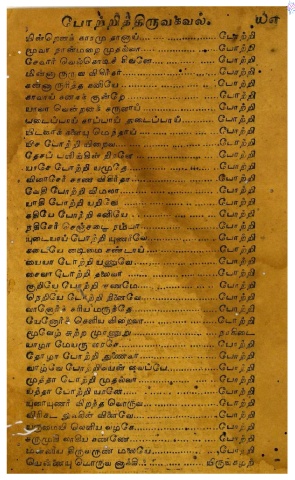 போற்றித்திருவகவல். ய௭
மின்னெக்
மூவா நான்மறை முதல்வா ........ போற்றி
சேவார் வெல்கொடிச் சிவனே ........ போற்றி
மின்னா ருருவ விகிர்தா ........ போற்றி
கன்னா ருரித்த கனியே ........ போற்றி
காவாய் கனகக் குன்றே ........ போற்றி
ஆவா வென்றனக் கருளாய் ........ போற்றி
படைப்பாய் காப்பாய் துடைப்பாய் ........ போற்றி
இடரைக் களையு மெந்தாய் ........ போற்றி
ஈச போற்றி யிறைவ ........ போற்றி
தேசப் பளிங்கின் றிரளே ........ போற்றி
அரைசே போற்றி யமுதே ........ போற்றி
விரைசேர் சரண விகிர்தா ........ போற்றி
வேதி போற்றி விமலா ........ போற்றி
ஆதி போற்றி யறிவே ........ போற்றி
கதியே போற்றி கனியே ........ போற்றி
நதிசேர் செஞ்சடை நம்பா ........ போற்றி
உடையாய் போற்றி யுணர்வே ........ போற்றி
கடையே னடிமை கண்டாய் ........ போற்றி
ஐயா போற்றி யணுவே ........ போற்றி
சைவா போற்றி தலைவா ........ போற்றி
குறியே போற்றி குணமே ........ போற்றி
நெறியே போற்றி நினைவே ........ போற்றி
வானோர்க் கரிய மருந்தே ........ போற்றி
ஏனோர்க் கெளிய விறைவா ........ போற்றி
தோழா போற்றி துணைவா ........ போற்றி
வாழ்வே போற்றியென் வைப்பே ........ போற்றி
முத்தா போற்றி முதல்வா ........ போற்றி
அத்தா போற்றி யரனே ........ போற்றி
விரிகட லுலகின் விளைவே ........ போற்றி
அருமையி லெளிய வழகே ........ போற்றி
கருமுகி லாகிய கண்ணே ........ போற்றி
மன்னிய திருவருண் மலையே ........ போற்றி